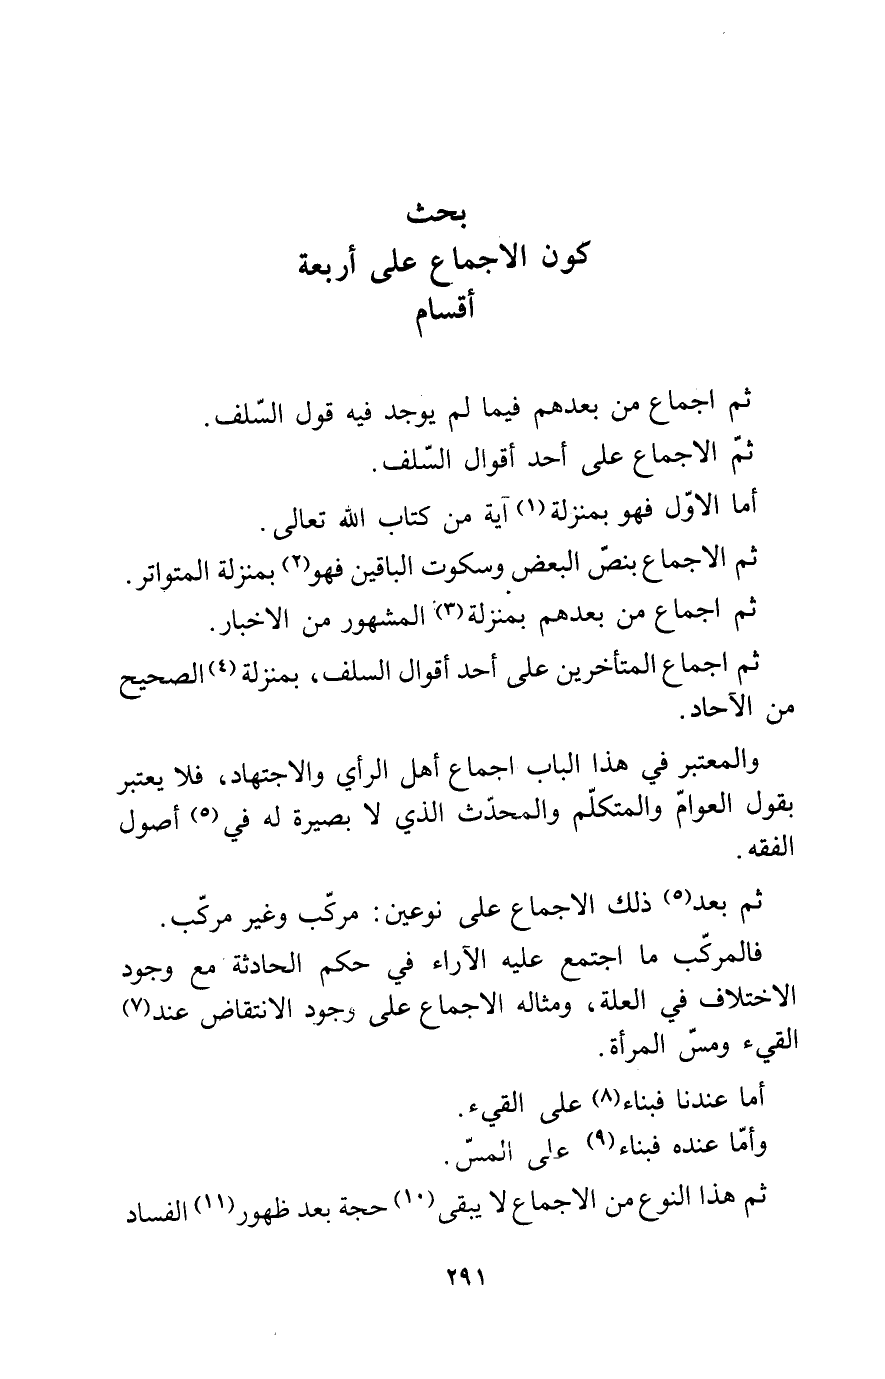 بحث
كون الاجماع على أربعة
أقسام
ثم اجماع من بعدهم فيما لم يوجد فيه قول السّلف.
ثمّ الاجماع على أحد أقوال السّلف.
أما الاوّل فهو بمنزلة(١) آية من كتاب الله تعالى.
ثم الاجماع بنصّ البعض وسكوت الباقين فهو(٢) بمنزلة المتواتر.
ثم اجماع من بعدهم بمنزلة(٣) المشهور من الاخبار.
ثم اجماع المتأخرين على أحد أقوال السلف، بمنزلة(٤) الصحيح
من الآحاد.
والمعتبر في هذا الباب اجماع أهل الرأي والاجتهاد، فلا يعتبر
بقول العوامّ والمتكلّم والمحدّث الذي لا بصيرة له في(٥) أصول
الفقه.
ثم بعد(٥) ذلك الاجماع على نوعين: مركّب وغير مركّب.
فالمركّب ما اجتمع عليه الآراء في حكم الحادثة مع وجود
الاختلاف في العلة، ومثاله الاجماع على وجود الانتقاض عند(٧)
القيء ومسّ المرأة.
أما عندنا فبناء(٨) على القيء.
وأمّا عنده فبناء(٩) على المسّ.
ثم هذا النوع من الاجماع لا يبقى(١٠) حجة بعد ظهور(١١) الفساد
٢٩١